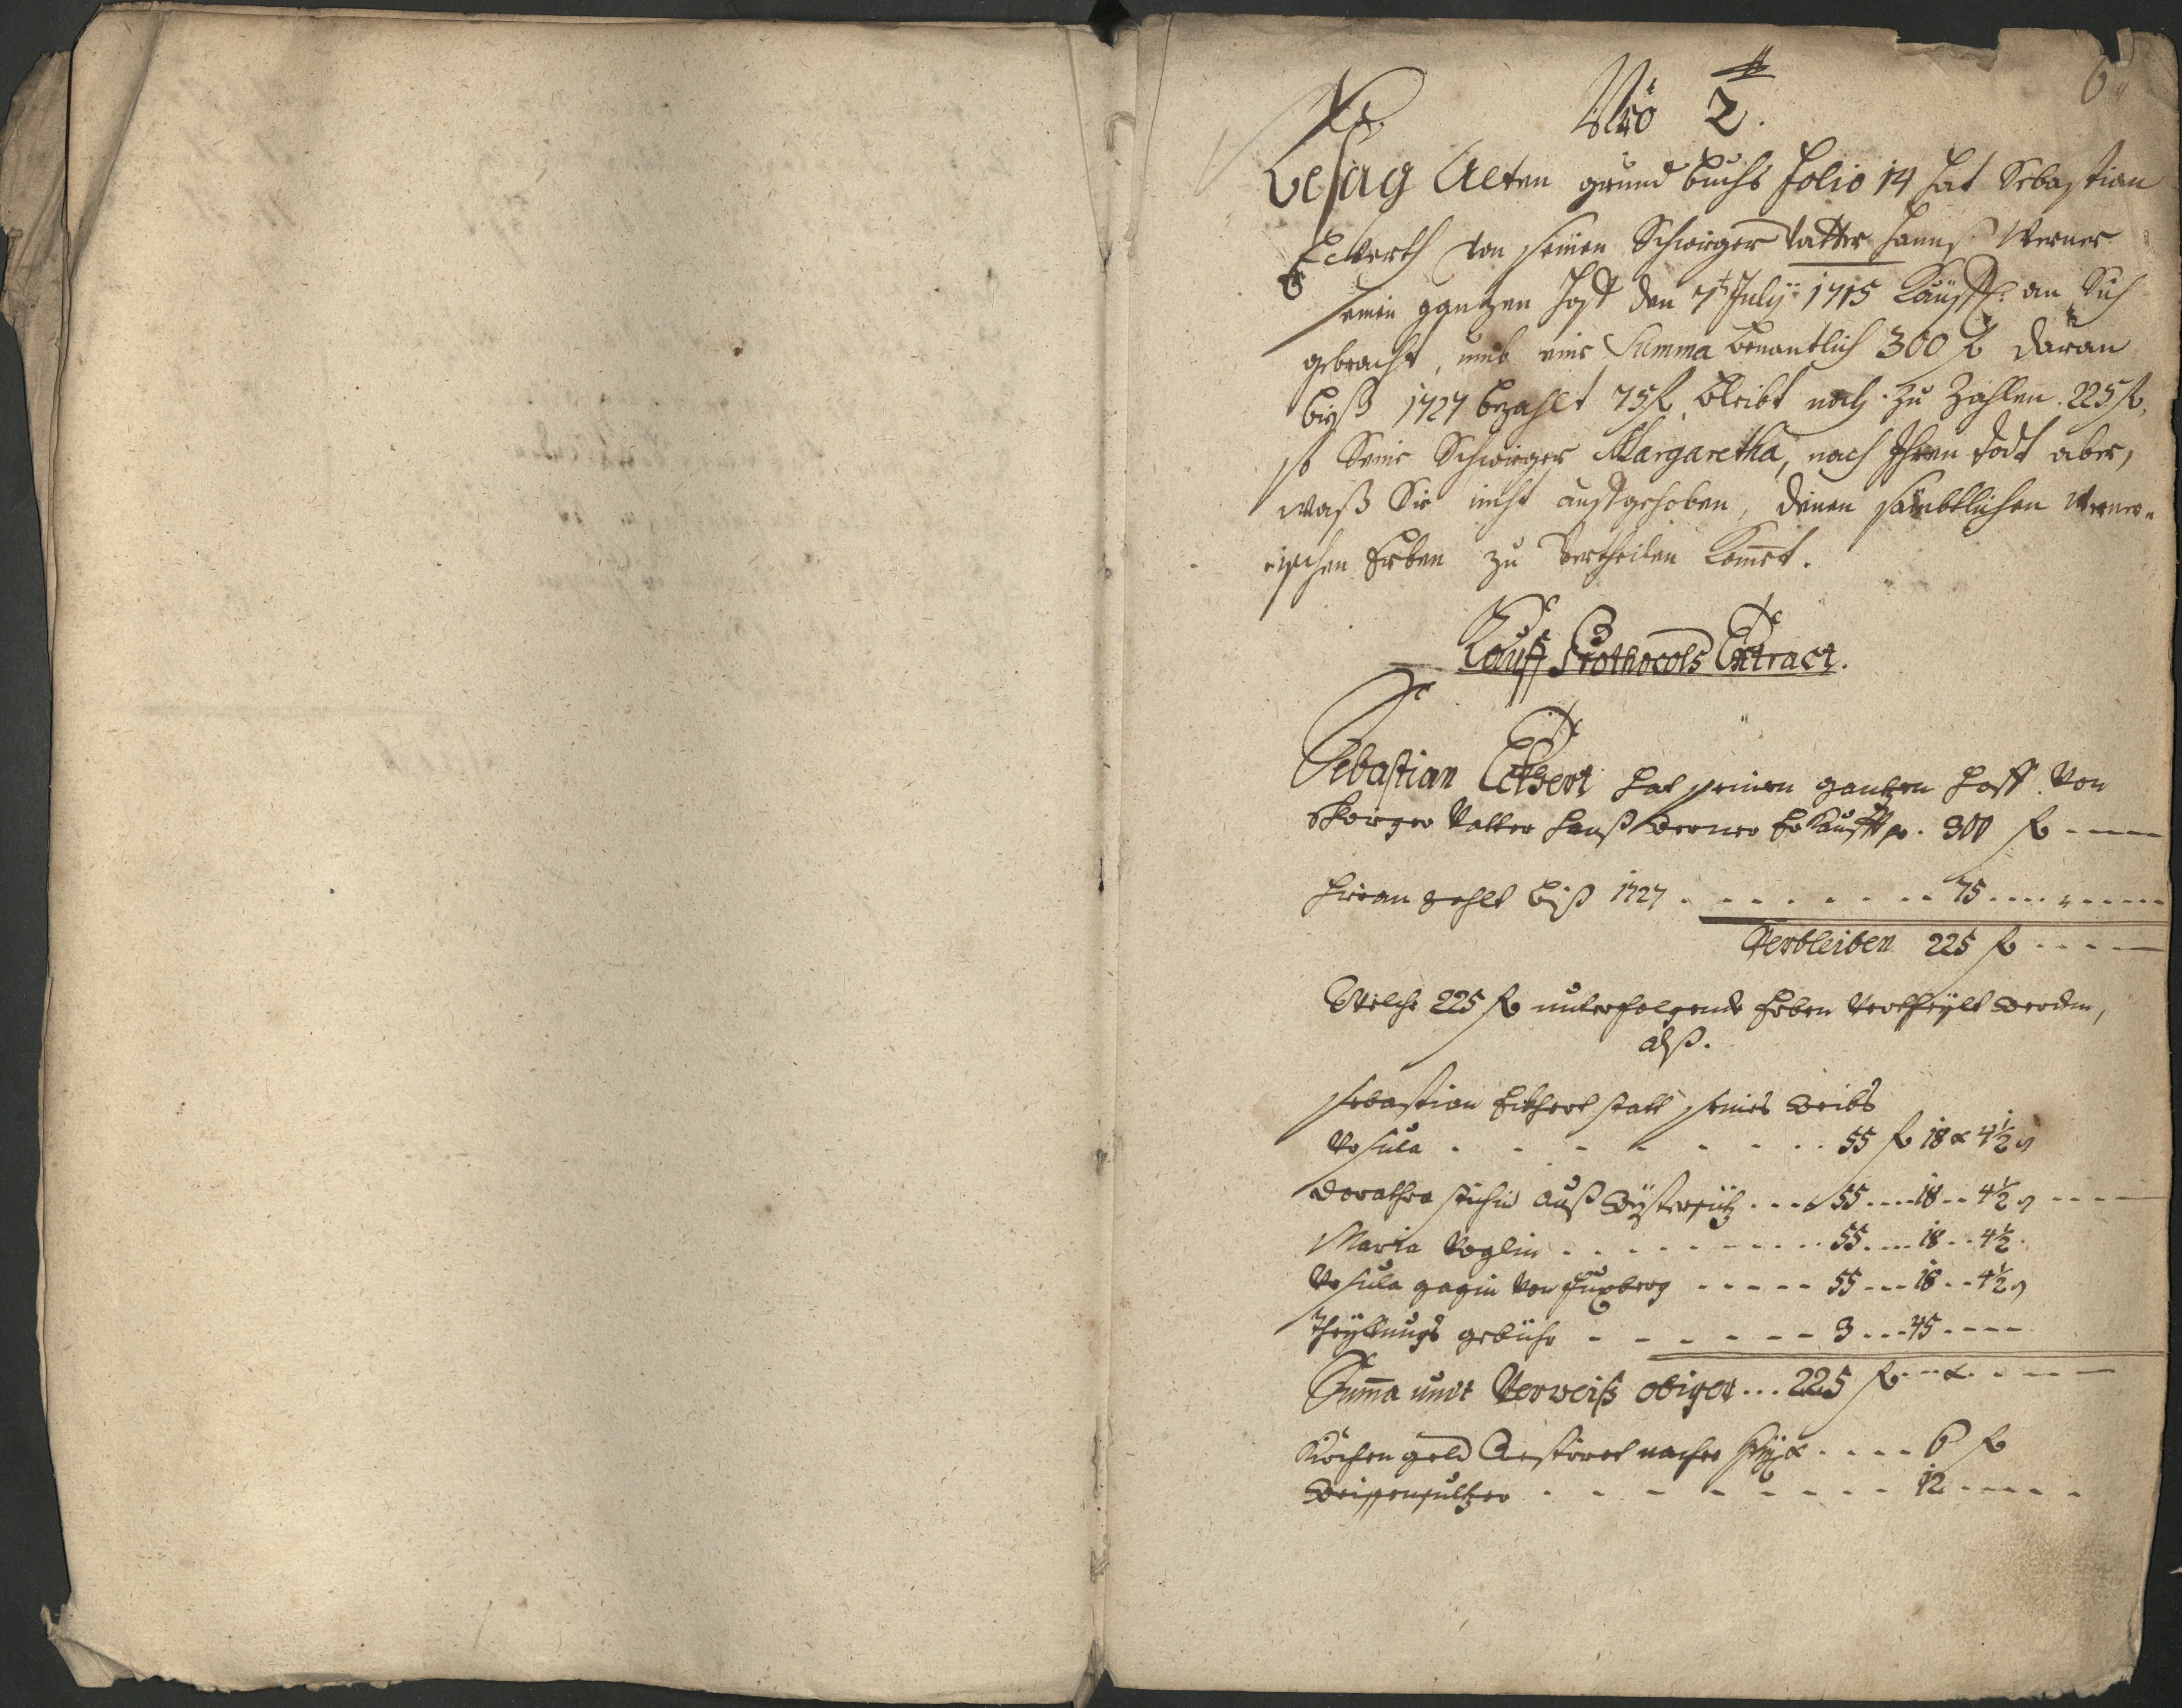 6
Nrō 2.
Besag Alten grund buchs Folio 14 hat Sebastian
Eckerth von seinen Schwiger Vatter Hannß Werner
seinen gantzen Hoff den 7t July 1715 Käuff: an Sich
gebracht, umb eine Summa benantlich 300 f daran
biß 1727 bezahlt 75 f, bleibt noch zu Zahlen 225 f,
so Seine Schwieger Margaretha, nach Ihren todt aber,
waß Sie nicht außgehoben, denen sämbtlichen Werner-
ischen Erben zu Vertheilen kom̄et.
Kauff Prothocols Extract.
Sebastian Eckhert hat seinen gantzen Hoff von
Schwiger Vatter Hanß Werner Erkaufft p. 300 f
Hieran zahlt biß 1727 . . . . . . . 75
Verbleiben 225 f
Welche 225 f unterfolgende Erben Vertheylt werden,
alß.
Sebastian Eckhert statt seines Weibs
Ursula . . . . . . . 55 f 18 x 4½ ₰
Dorathea auß . . . . 55 .... 18 .. 4½ ₰
Maria Voglin . . . . . . . . 55 .... 18 .. 4½
Ursula von . . . . . 55 ... 18 .. 4½ ₰
Theyllungs gebühr . . . . . . . 3 ... 45
Sum̄a undt Verweiß obiger ... 225 f .. x
Kirchen geld . . . . 6 f
. . . . . . . . . 12